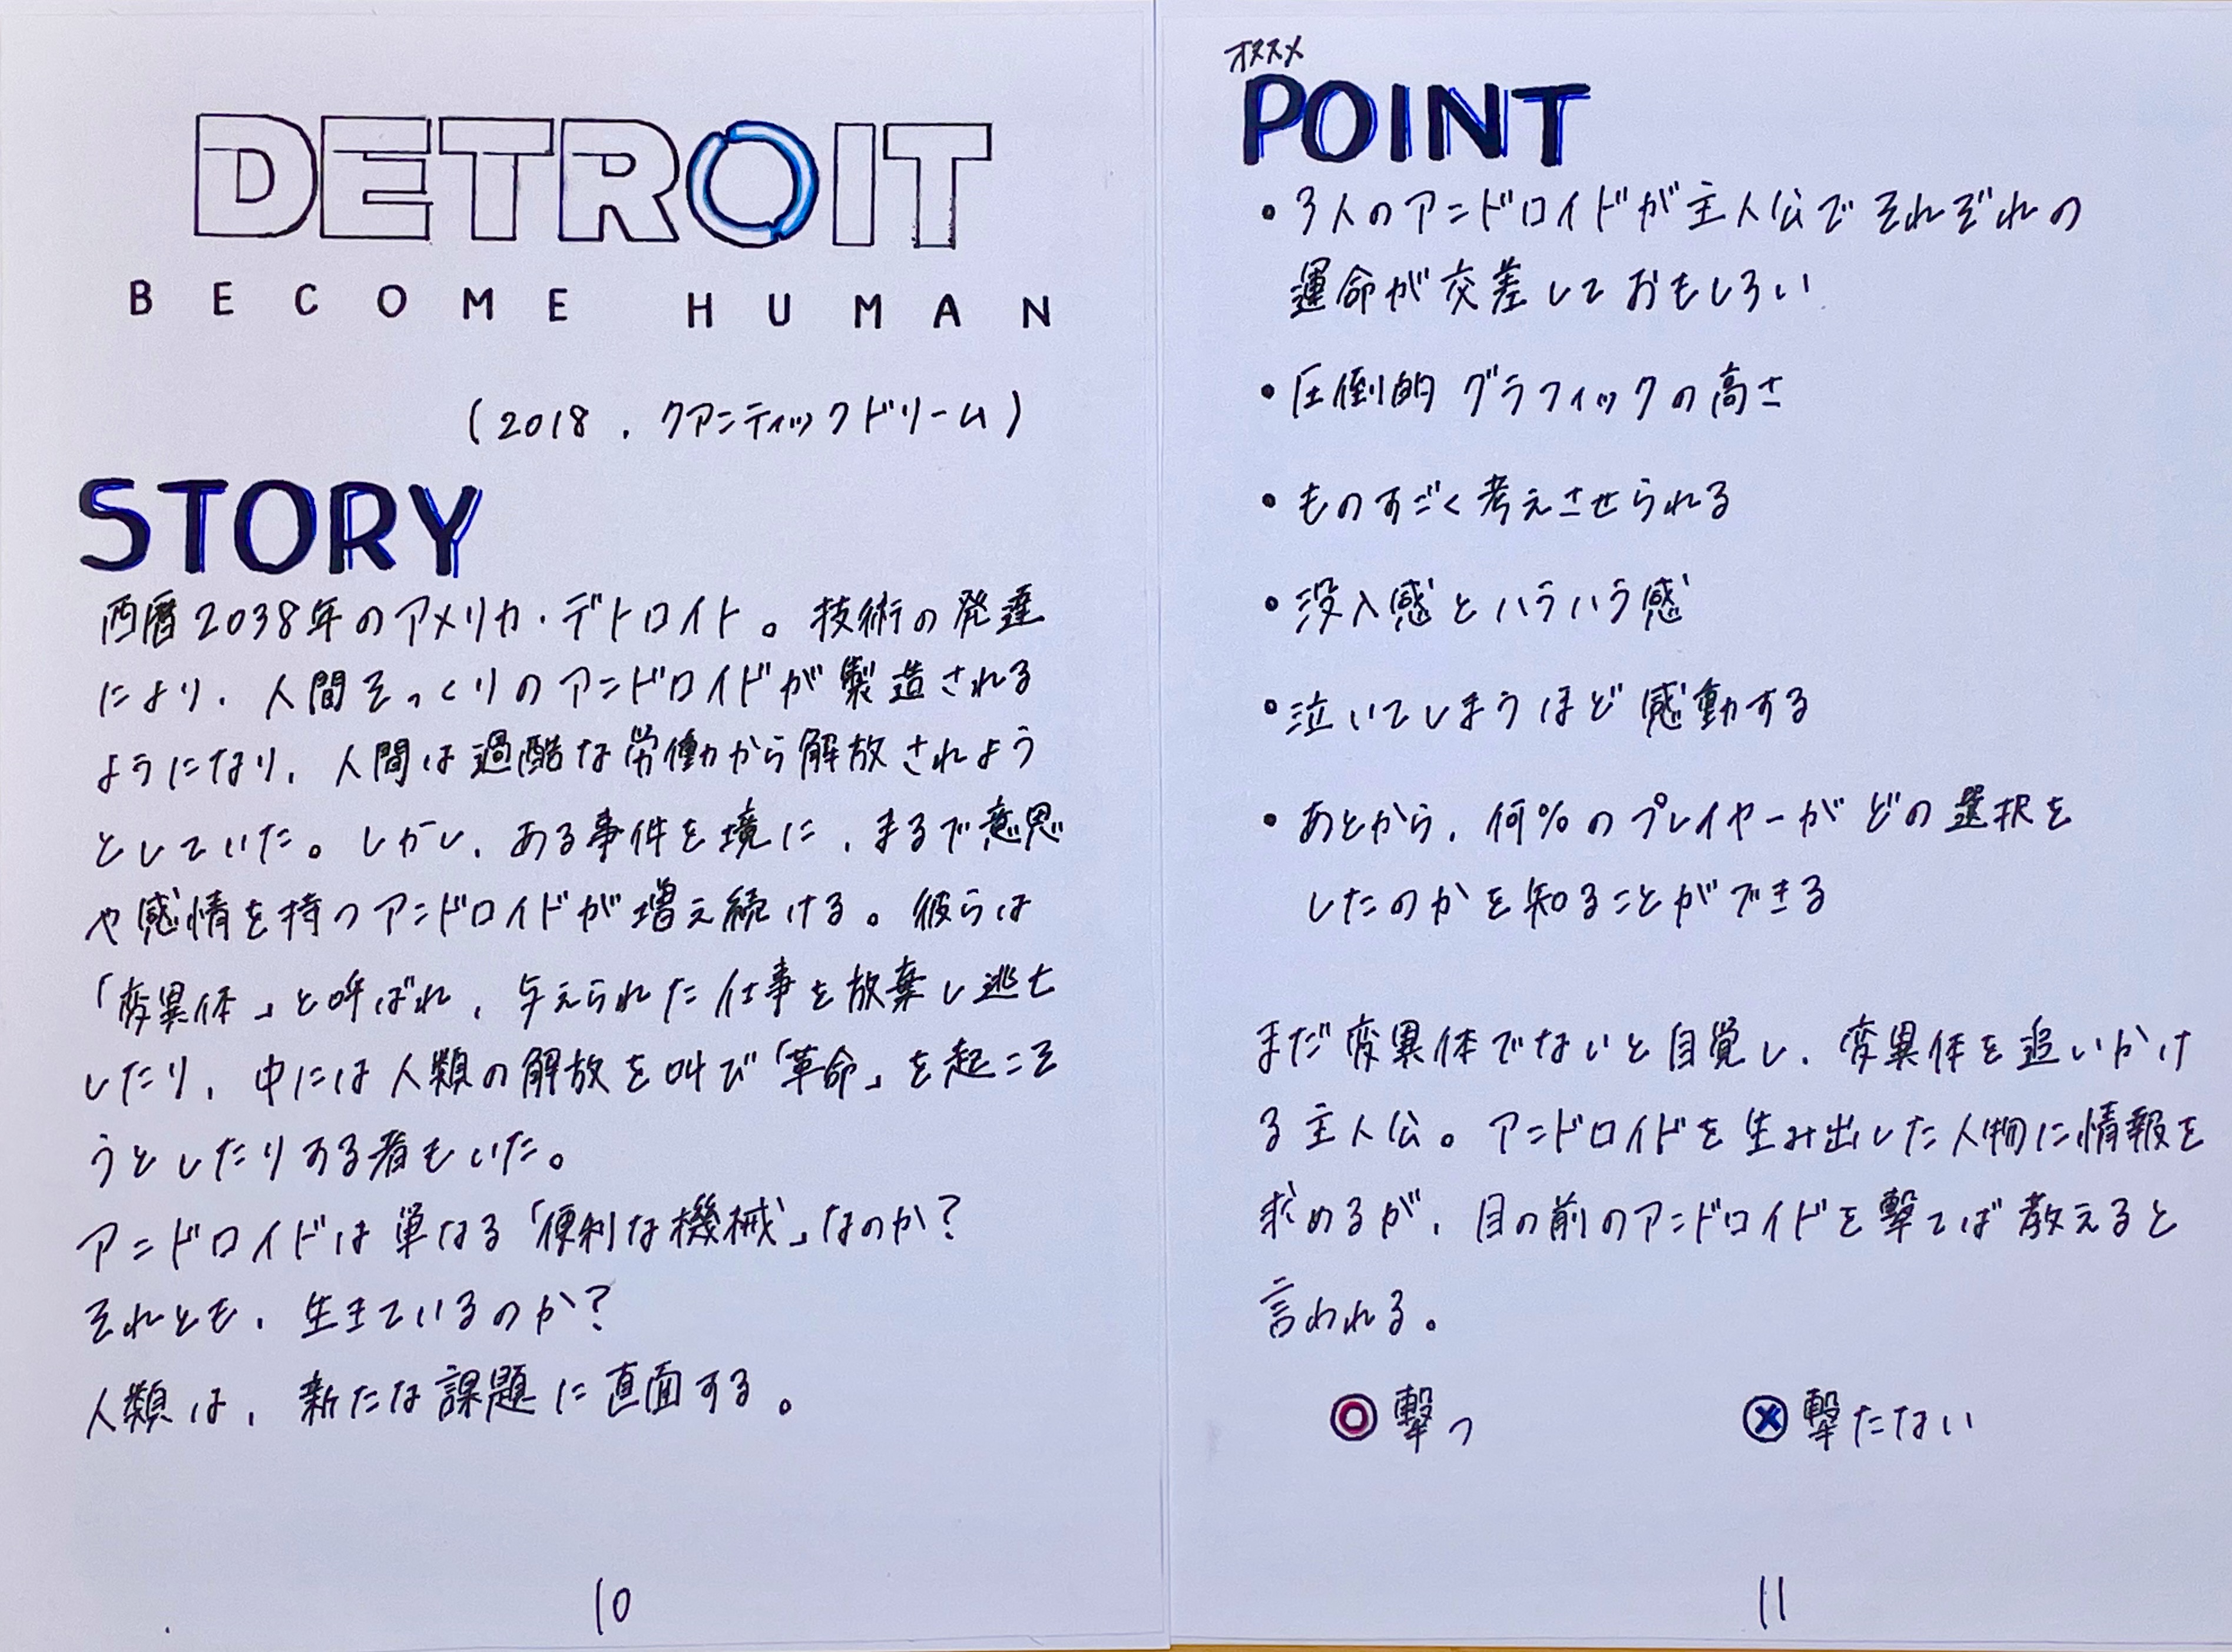 DETROIT
BECOME HUMAN
(2018, クアンティックドリーム)
STORY
西暦2038年のアメリカ・デトロイト。技術の発達
により、人間そっくりのアンドロイドが製造される
ようになり、人間は過酷な労働から解放されよう
としていた。しかし、ある事件を境に、まるで意思
や感情を持つアンドロイドが増え続ける。彼らは
「変異体」と呼ばれ、与えられた仕事を放棄し逃亡
したり、中には人類の解放を叫び「革命」を起こそ
うとしたりする者もいた。
アンドロイドは単なる「便利な機械」なのか?
それとも、生きているのか?
人類は、新たな課題に直面する。
10
オススメ
POINT
・3人のアンドロイドが主人公でそれぞれの
運命が交差しておもしろい
・圧倒的グラフィックの高さ
・ものすごく考えさせられる
・没入感とハラハラ感
・泣いてしまうほど感動する
・あとから、何%のプレイヤーがどの選択を
したのかを知ることができる
まだ変異体でないと自覚し、変異体を追いかけ
る主人公。アンドロイドを生み出した人物に情報を
求めるが、目の前のアンドロイドを撃てば教えると
言われる。
◎撃つ ⊗撃たない
11